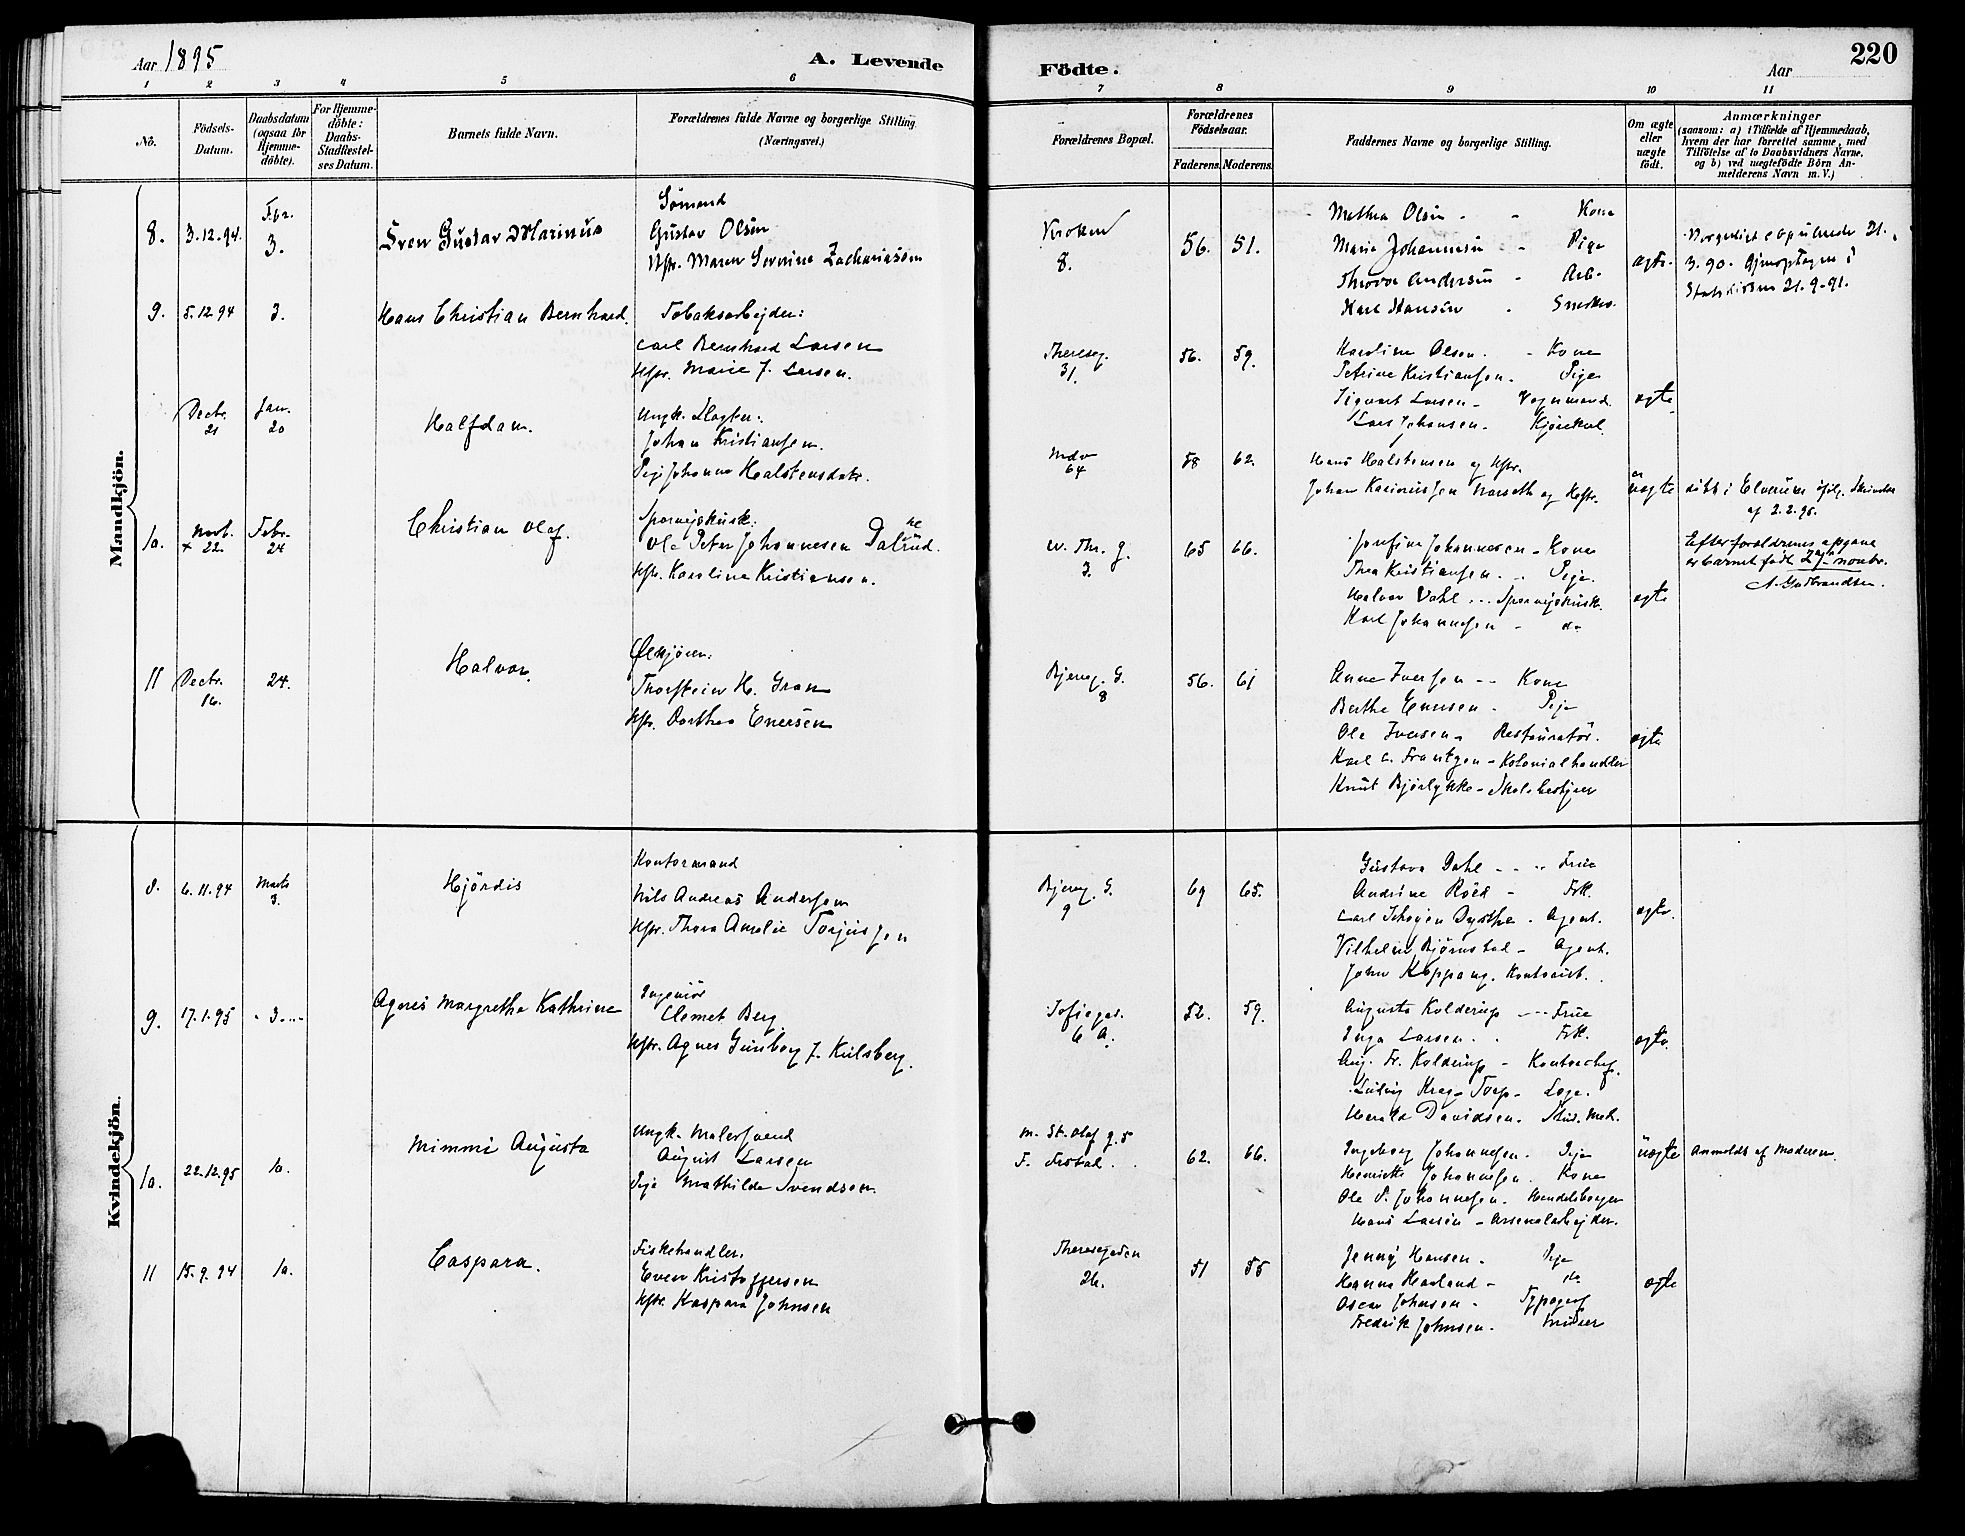 Aar 1895
A. Levende
Födte.
Aar
220
1 2 3 4 5 6 7 8 9 10 11
No.
Födsels-Datum.
Daabsdatum (ogsaa för Hjemme-döbte).
For Hjemme-döbte: Daabs-Stadfæstel-ses Datum.
Barnets fulde Navn.
Forældrenes fulde Navne og borgerlige Stilling. (Næringsvei.)
Forældrenes Bopæl.
Forældrenes Födselsaar.
Faderens. Moderens.
Faddernes Navne og borgerlige Stilling.
Om ægte eller uægte födt.
Anmærkninger
(saasom: a) i Tilfælde af Hjemmedaab, hvem der har forrettet samme, med Tilföielse af to Daabsvidners Navne, og b) ved uægtefödte Börn An-melderens Navn m. V.)
Mandkjön.
8. 3.12.94. Fbr. 3. Sven Gustav Marinus
Sömand
Gustav Olsen
Hstr. Maren Severine Zachariasen
Kroken 8.
56. 51.
Mathea Olsen - - Kone
Maria Johannesen - Pige
Thorva Andersen - Arb.
Karl Hansen - Snedker
ægte.
21. 3.90. Gjenoptagen i Statskirken 21.9.91.
9. 5.12 94 3. Hans Christian Bernhard.
Tobaksarbejder:
Carl Bernhard Larsen
Hstr. Marie J. Larsen.
Thereseg. 31.
56. 59.
Karoline Olsen. - Kone
Petrine Kristiansen. Pige
Sigvart Larsen - Vognmand.
Lars Johansen. Kjörekarl.
ægte
Decbr. 21 Jan. 20 Halfdan.
Ungk. Slagter:
Johan Kristiansen.
Pige Johanne Halstensdatr.
58 62.
Hans Halstensen og Hstr.
Johan Karinusen Narseth og Hstr.
uægte
döbt i Elverum ifölg. Skrivelse af 2.2.95.
10. Novb. + 22. Febr. 24 Christian Olaf.
Sporvejskusk:
Ole Peter Johannesen Dalrud.
Hstr. Karoline Kristiansen.
3.
65 66.
Josefine Johannesen - Kone
Thea Kristiansen. - Pige.
Halvor Dahl - Sporvejskusk.
Karl Johannesen - do
ægte
Efter forældrenes opgave er barnet födt 27de novbr.
A. Gudbrandsen.
11 Decbr. 16. 24. Halvor.
Ølkjører:
Thorstein H. Gran
Hstr. Dorthea Enersen
Bjerreg. G. 8
56. 61
Anne Iversen - - Kone
Berthe Enersen - Pige
Ole Iversen - Restauratör.
Karl C. Frantzen - Kolonialhandler
Knut Bjørlykke - Skolebestyrer
ægte
Kvindekjön.
8. 6.11.94 Marts 3. Hjördis
Kontormand
Nils Andreas Andersen
Hstr. Thora Amalie Torjusen
Bjerreg. G. 9
69 65.
Gustava Dahl - - - Frue
Andrine Röed - Frk.
Carl Schøyen Dysthe - Agent.
Vilhelm Bjørnstad - Agent.
John Koppang. Kontorist.
ægte.
9. 17.1.95 - 3. - Agnes Margrethe Kathrine
Ingeniör
Clemet Berg
Hstr. Agnes Gunborg J. Kulsberg.
Sofiegad. 6 A.
52. 59.
Augusta Kolderup - - - Frue
Inga Larsen. . Frk.
Aug. Fr. Kolderup - Kontorchef.
Ludvig Krag-Torp - Læge.
Harald Davidsen. Stud. Med.
ægte.
10. 22.12.95 10. Mimmi Augusta
Ungk. Malersvend
August Larsen
Pige Mathilde Svendsen.
M. St. Olaf g. 5
62. 66.
Ingeborg Johannesen. Pige
Henriette Johannesen. Kone
Ole P. Johannesen. Handelsborger
Hans Larsen - Arsenalarbejder.
uægte
Anmeldt af Moderen.
11 15.9.94 10. Caspara.
Fiskehandler.
Even Kristoffersen
Hstr. Kaspara Johnsen
Theresegaden 26.
51 55
Jenny Hansen. Pige
Hanna Harland - do
Oscar Johnsen - Typograf
Fredrik Johnsen. Murer
ægte